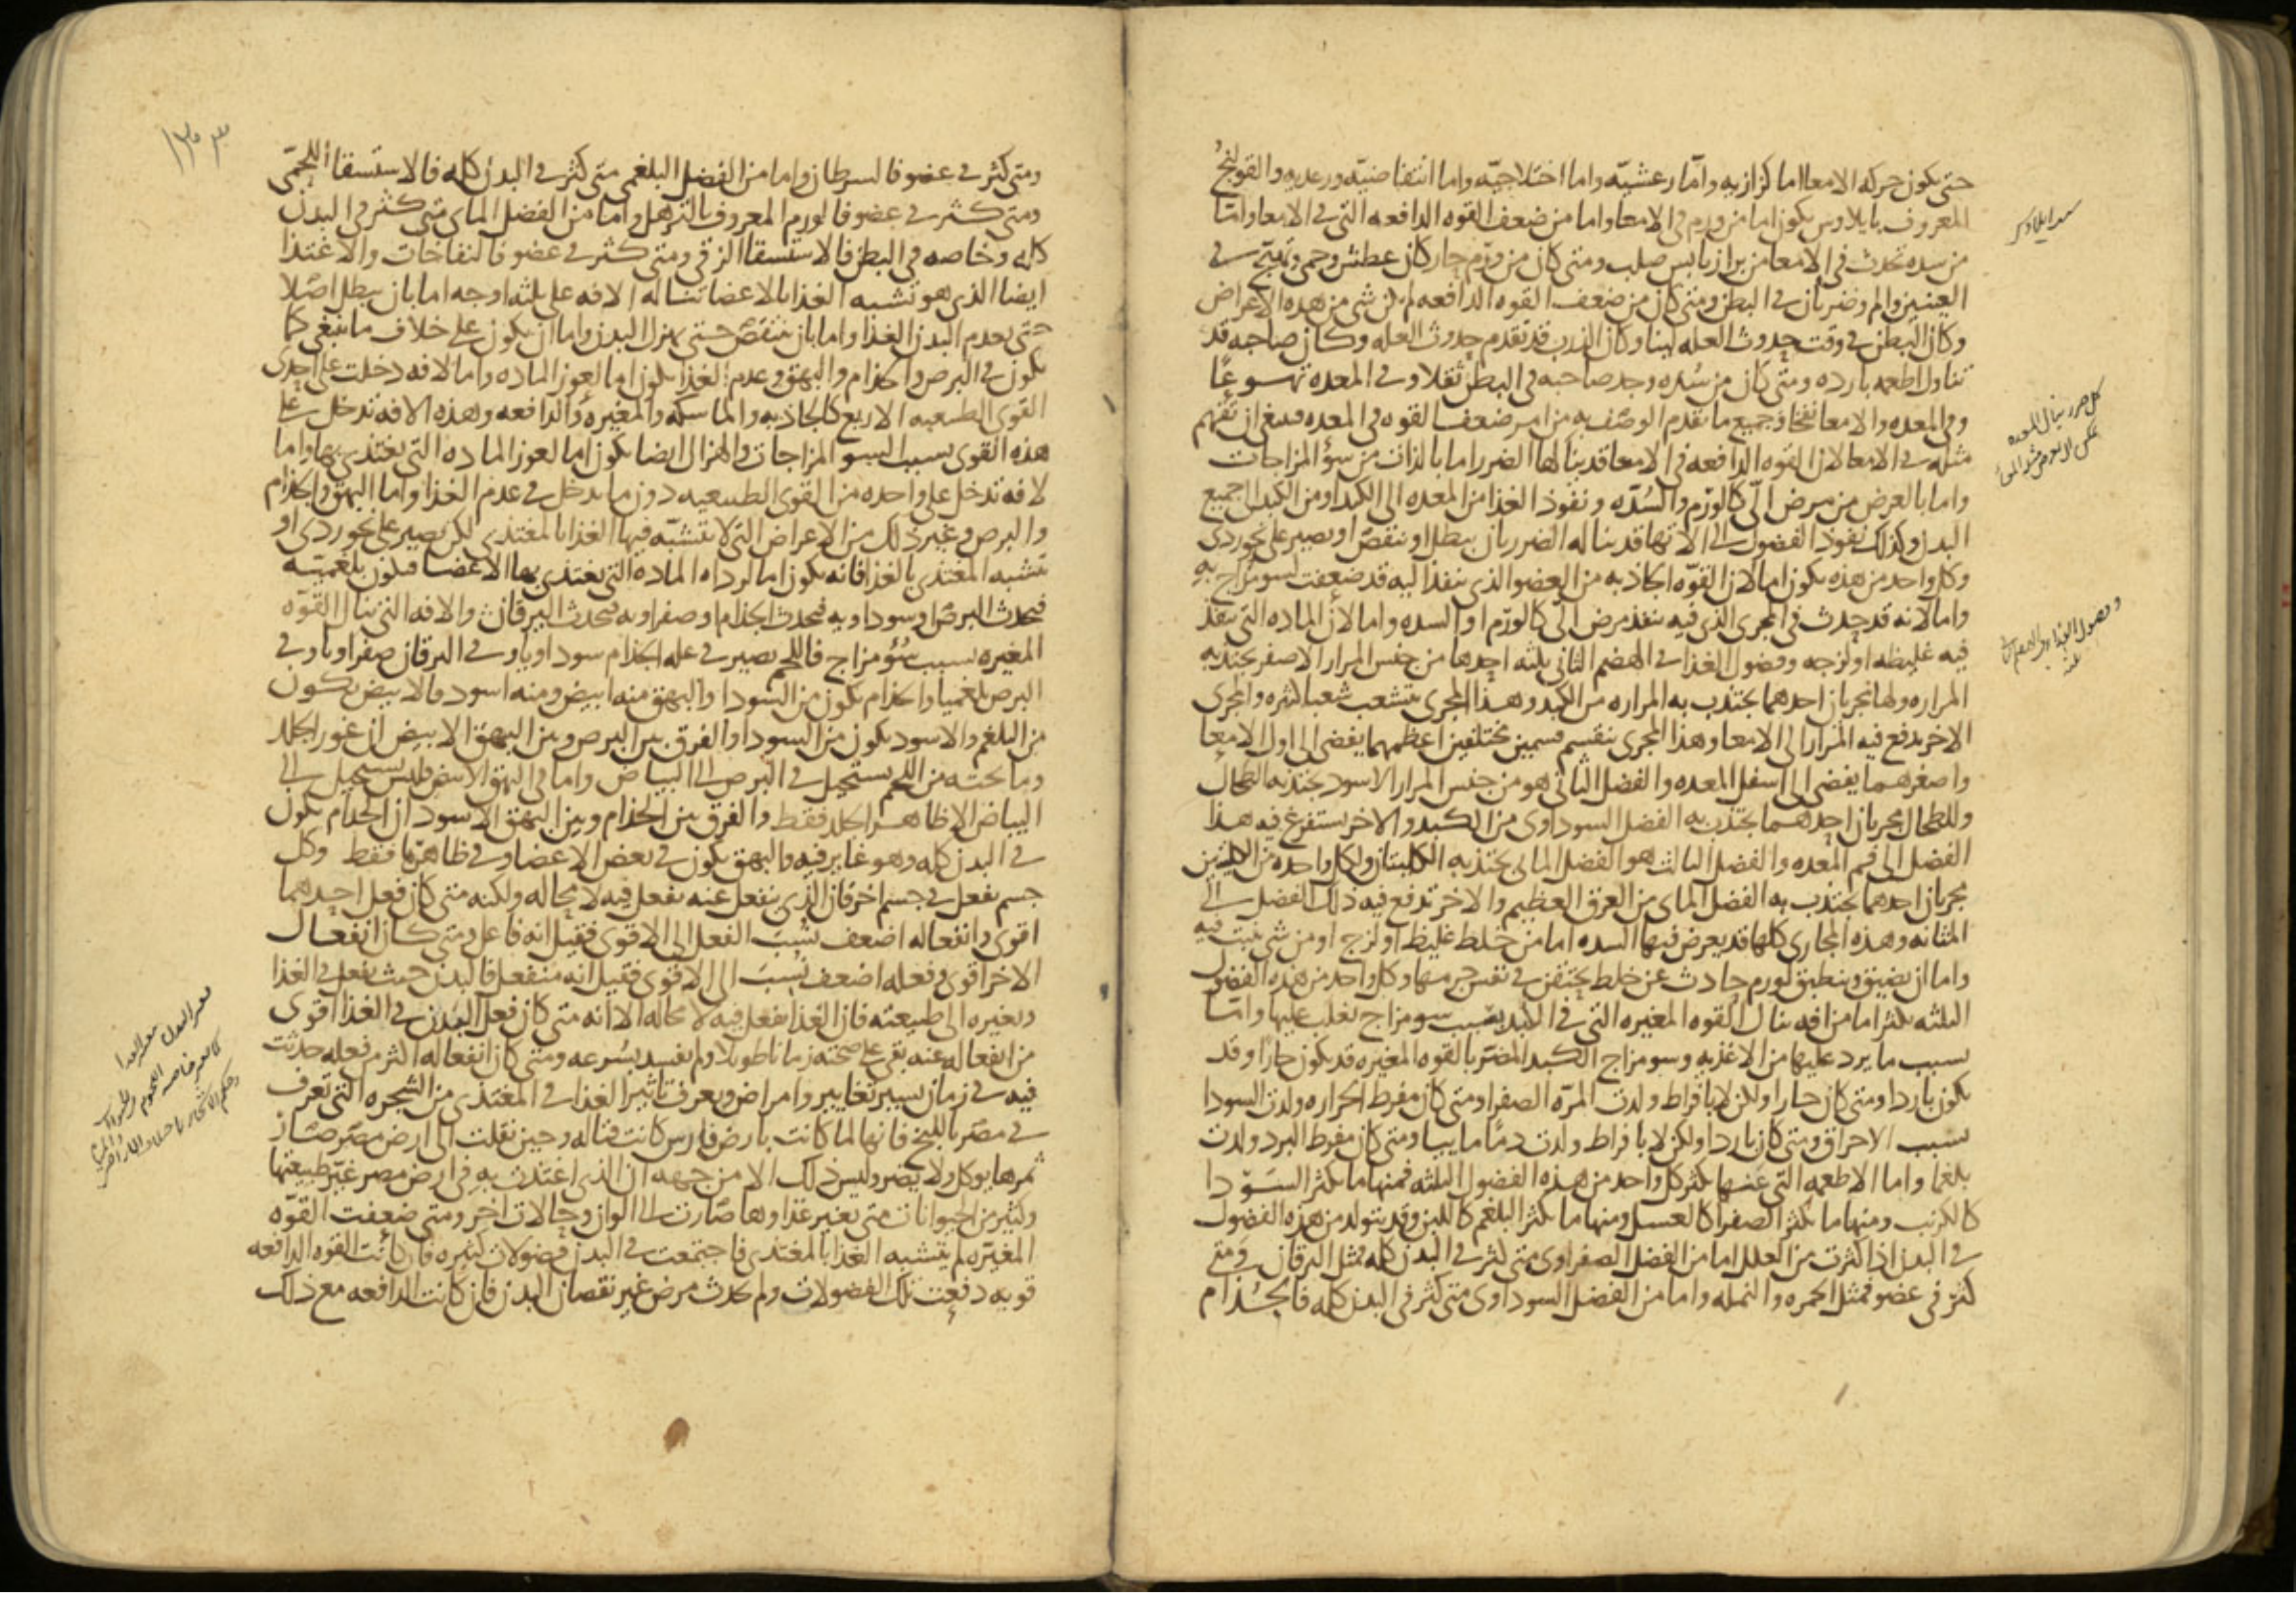 حتى يكون حركه الامعا اما كزازيه واما رعشيه واما اختلاجيه واما انتفاضيه ورعديه والقولنج
المعروف بايلاوس يكون اما من ورم في الامعا واما من ضعف القوه الدافعه التي في الامعا واما
من سده تحدث في الامعا من براز يابس صلب ومتى كان من ورم حار كان عطش وحمى وتهيج في
العينين والم وضربان في البطن ومتى كان من ضعف القوه الدافعه لم يكن شي من هذه الاعراض
وكان البطن في وقت حدوث العله لينا وكان الذرب قد تقدم حدوث العله وكان صاحبه قد
تناول اطعمه بارده ومتى كان من سده وجد صاحبه في البطن ثقلا وفي المعده تهوعا
وفي المعده والامعا نفخا وجميع ما تقدم الوصف به من امر ضعف القوه في المعده فينبغي ان تفهم
مثله في الامعا لان القوه الدافعه في الامعا قد ينالها الضرر اما بالذات من سؤ المزاجات
واما بالعرض من مرض الي كالورم والسده ونفوذ الغذا من المعده الى الكبد او من الكبد الى جميع
البدن وكذلك نفوذ الفضول الى الاتها قد يناله الضرر بان يبطل او ينقص او يصير على نحو ردي
وكل واحد من هذه يكون اما لان القوه الجاذبه من العضو الذي ينفذ اليه قد ضعفت لسو مزاج به
واما لانه قد حدث في المجرى الذي فيه ينفذ مرض الي كالورم او السده واما لان الماده التي تنفذ
فيه غليظه او لزجه وفضول الغذا في الهضم الثاني ثلثه احدها من جنس المرار الاصفر يجتذبه
المراره ولها مجريان احدهما يجتذب به المراره من الكبد وهذا المجرى يتشعب شعبا كثيره والمجرى
الاخر يدفع فيه المرار الى الامعا وهذا المجرى ينقسم قسمين مختلفين اعظمهما يفضي الى اول الامعا
واصغرهما يفضي الى اسفل المعده والفضل الثاني هو من جنس المرار الاسود يجتذبه الطحال
وللطحال مجريان احدهما يجتذب به الفضل السوداوي من الكبد والاخر يستفرغ فيه هذا
الفضل الى فم المعده والفضل الثالث هو الفضل المائي يجتذبه الكليتان ولكل واحده من الكليتين
مجريان احدهما يجتذب به الفضل الماي من العرق العظيم والاخر تدفع فيه ذلك الفضل الى
المثانه وهذه المجاري كلها قد يعرض فيها السده اما من خلط غليظ او لزج او من شي ينبت فيه
واما ان يضيق وينطبق لورم حادث عن خلط يحتقن في نفس جرمها وكل واحد من هذه الفضول
الثلثه يكثر اما من افه ينال القوه المغيره التي في الكبد بسبب سو مزاج يغلب عليها واما
بسبب ما يرد عليها من الاغذيه وسو مزاج الكبد المضر بالقوه المغيره قد يكون حارا وقد
يكون باردا ومتى كان حارا ولكن لا بافراط ولدت المره الصفرا ومتى كان مفرط الحراره ولدت السودا
بسبب الاحراق ومتى كان باردا ولكن لا بافراط ولدت دما مايبا ومتى كان مفرط البرد ولدت
بلغما واما الاطعمه التي عنها يكثر كل واحد من هذه الفضول الثلثه فمنها ما يكثر السودا
كالكرنب ومنها ما يكثر الصفرا كالعسل ومنها ما يكثر البلغم كاللبن وقد يتولد من هذه الفضول
في البدن اذا كثرت من العلل اما من الفضل الصفراوي متى كثر في البدن كله فمثل اليرقان ومتى
كثر في عضو فمثل الحمره والنمله واما من الفضل السوداوي متى كثر في البدن كله فالجذام
كل ضرر ينال المعده
١٣٠٣
ومتى كثر في عضو فالسرطان واما من الفضل البلغمي متى كثر في البدن كله فالاستسقا اللحمي
ومتى كثر في عضو فالورم المعروف بالترهل واما من الفضل الماي متى كثر في البدن
كله وخاصه في البطن فالاستسقا الزقي ومتى كثر في عضو فالنفاخات والاغتذا
ايضا الذي هو تشبه الغذا بالاعضا تناله الافه على ثلثه اوجه اما بان يبطل اصلا
حتى يعدم البدن الغذا واما بان ينقص حتى يهزل البدن واما ان يكون على خلاف ما ينبغي كما
يكون في البرص والجذام والبهق وعدم الغذا يكون اما لعوز الماده واما لافه دخلت على احدى
القوى الطبيعيه الاربع كالجاذبه والماسكه والمغيره والدافعه وهذه الافه تدخل على
هذه القوى بسبب لسو المزاجات والهزال ايضا يكون اما لعوز الماده التي يغتذي بها واما
لافه تدخل على واحده من القوى الطبيعيه دون ما يدخل في عدم الغذا واما البهق والجذام
والبرص وغير ذلك من الاعراض التي لا يتشبه فيها الغذا بالمغتذي لكن يصير على نحو ردي او
تشبه المغتذي بالغذا فانه يكون اما لرداه الماده التي يغتذي بها الاعضا فيكون بلغميه
فيحدث البرص او سوداويه فيحدث الجذام او صفراويه فيحدث اليرقان والافه التي تنال القوه
المغيره بسبب سؤ مزاج فاللحم يصير في عله الجذام سوداويا وفي اليرقان صفراويا وفي
البرص بلغميا والجذام يكون من السودا والبهق منه ابيض ومنه اسود فالابيض يكون
من البلغم والاسود يكون من السودا والفرق بين البرص وبين البهق الابيض ان غور الجلد
وما تحته من اللحم يستحيل في البرص الى البياض واما في البهق الابيض فليس يستحيل الى
البياض الا ظاهر الجلد فقط والفرق بين الجذام وبين البهق الاسود ان الجذام يكون
في البدن كله وهو غاير فيه والبهق يكون في بعض الاعضا وفي ظاهرها فقط وكل
جسم يفعل في جسم اخر فان الذي ينفعل عنه يفعل فيه لا محاله ولكنه متى كان فعل احدهما
اقوى وانفعاله اضعف نسب الفعل الى الاقوى فقيل انه فاعل ومتى كان انفعال
الاخر اقوى وفعله اضعف نسب الى الاقوى فقيل انه منفعل فالبدن حيث يفعل في الغذا
ويغيره الى طبيعته فان الغذا يفعل فيه لا محاله الا انه متى كان فعل البدن في الغذا اقوى
من انفعاله عنه بقي على صحته زمانا طويلا ولم يفسد بسرعه ومتى كان انفعاله اكثر من فعله حدثت
فيه في زمان يسير تغايير وامراض ويعرف تاثير الغذا في المغتذي من الشجره التي تعرف
في مصر باللبخ فانها لما كانت بارض فارس كانت قتاله وحين نقلت الى ارض مصر صار
ثمرها يوكل ولا يضر وليس ذلك الا من جهه ان الذي اغتذت به في ارض مصر غير طبيعتها
وكثير من الحيوانات متى يغير غذاوها صارت الى الوان وحالات اخر ومتى ضعفت القوه
المغيره لم يتشبه الغذا بالمغتذي فاجتمعت في البدن فضولات كثيره فان كانت القوه الدافعه
قويه دفعت تلك الفضولات ولم يحدث مرض غير نقصان البدن فان كانت الدافعه مع ذلك